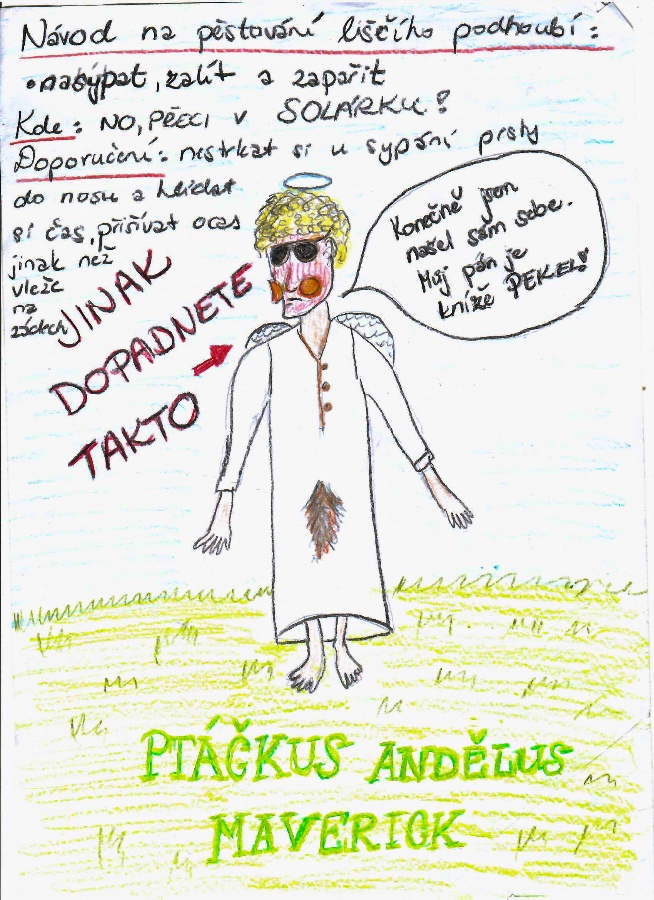 Návod na pěstování liščího podhoubí:
• nasýpat, zalít a zapařit
Kde: NO, PŘECI V SOLÁRKU!
Doporučení: nestrkat si u sypání prsty
do nosu a hlídat
si čas, přišívat ocas
jinak než
vleže
na
zádech
JINAK
DOPADNETE
TAKTO
Konečně jsem
našel sám sebe.
Můj pán je
kníže PEKEL!
PTÁČKUS ANDĚLUS
MAVERICK